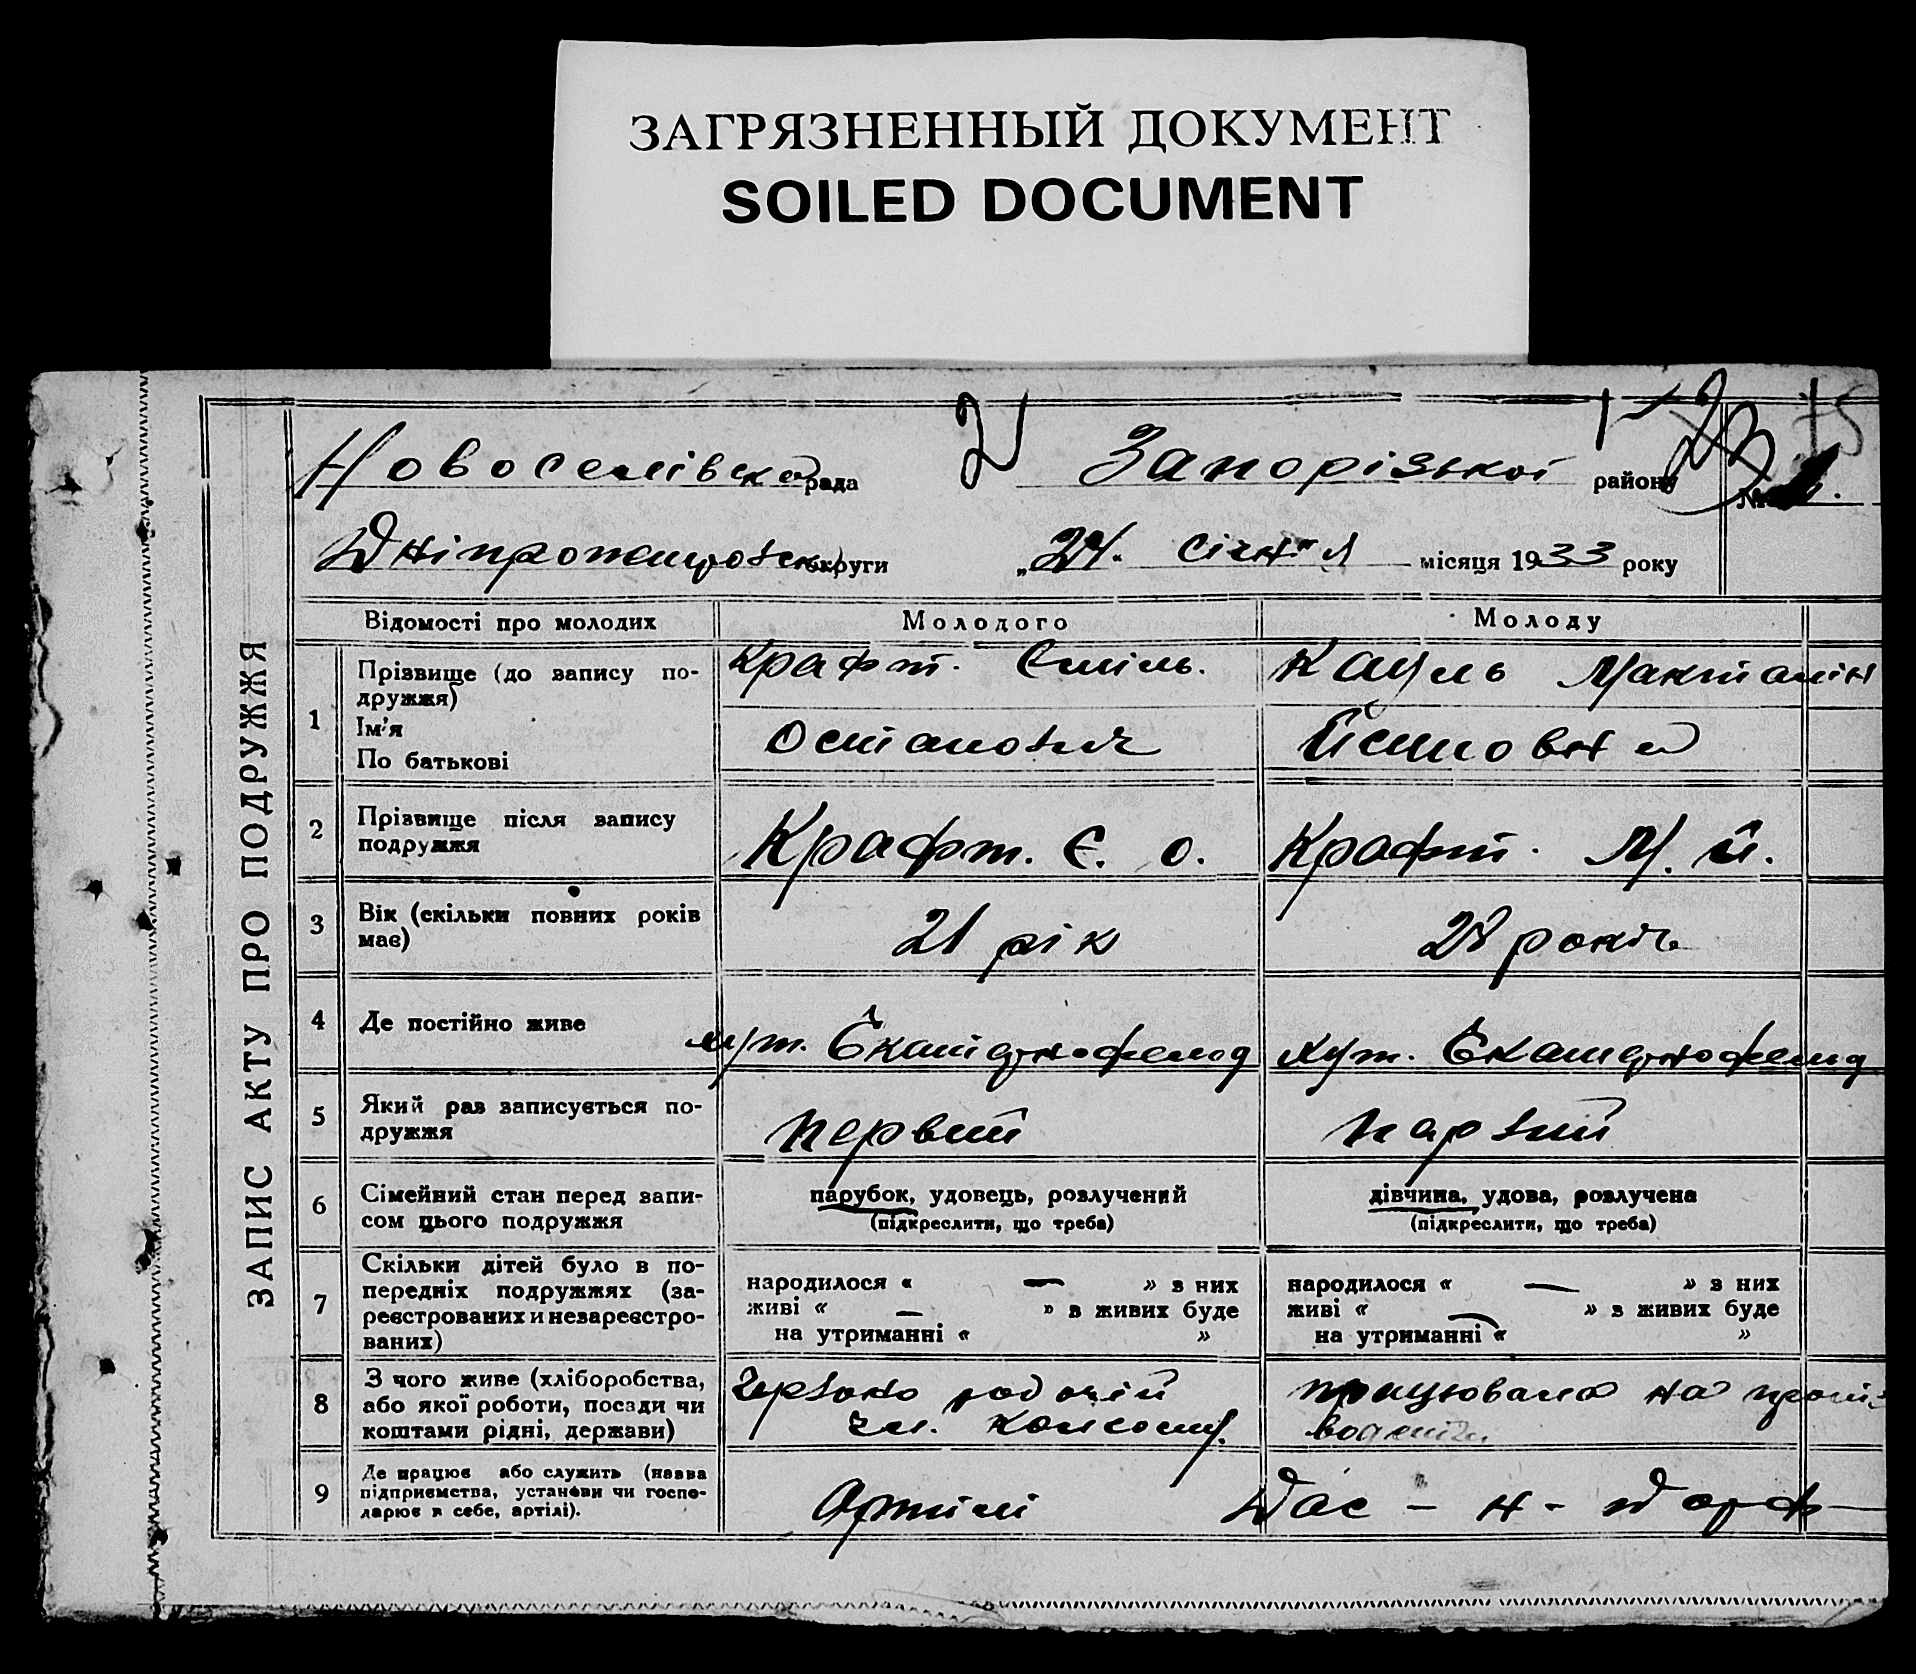 ЗАГРЯЗНЕННЫЙ ДОКУМЕНТ
SOILED DOCUMENT
2
Новоселівська рада Запорізької району №
Дніпропетровськ округи „24" січня місяця 1933 року
ЗАПИС АКТУ ПРО ПОДРУЖЖЯ
Відомості про молодих Молодого Молоду
1 Прізвище (до запису по-
дружжя)
Ім'я
По батькові
Крафт. Єміль.
Остапович
Кацль
2 Прізвище після запису
подружжя
Крафт. Є. О. Крафт. М. Й.
3 Вік (скільки повних років
має)
21 рік років
4 Де постійно живе
хут. Єкатеринофельд хут. Єкатеринофельд
5 Який раз записується по-
дружжя
первий первий
6 Сімейний стан перед запи-
сом цього подружжя
парубок, удовець, розлучений
(підкреслити, що треба)
дівчина, удова, розлучена
(підкреслити, що треба)
7 Скільки дітей було в по-
передніх подружжях (за-
реєстрованих и незареєстро-
ваних)
народилося « — » з них
живі « — » з живих буде
на утриманні « »
народилося « — » з них
живі « — » з живих буде
на утриманні « »
8 З чого живе (хліборобства,
або якої роботи, посади чи
коштами рідні, держави)
чл. колгоспу.
працювала на
9 Де працює або служить (назва
підприємства, установи чи госпо-
дарює в себе, артілі).
Артілі